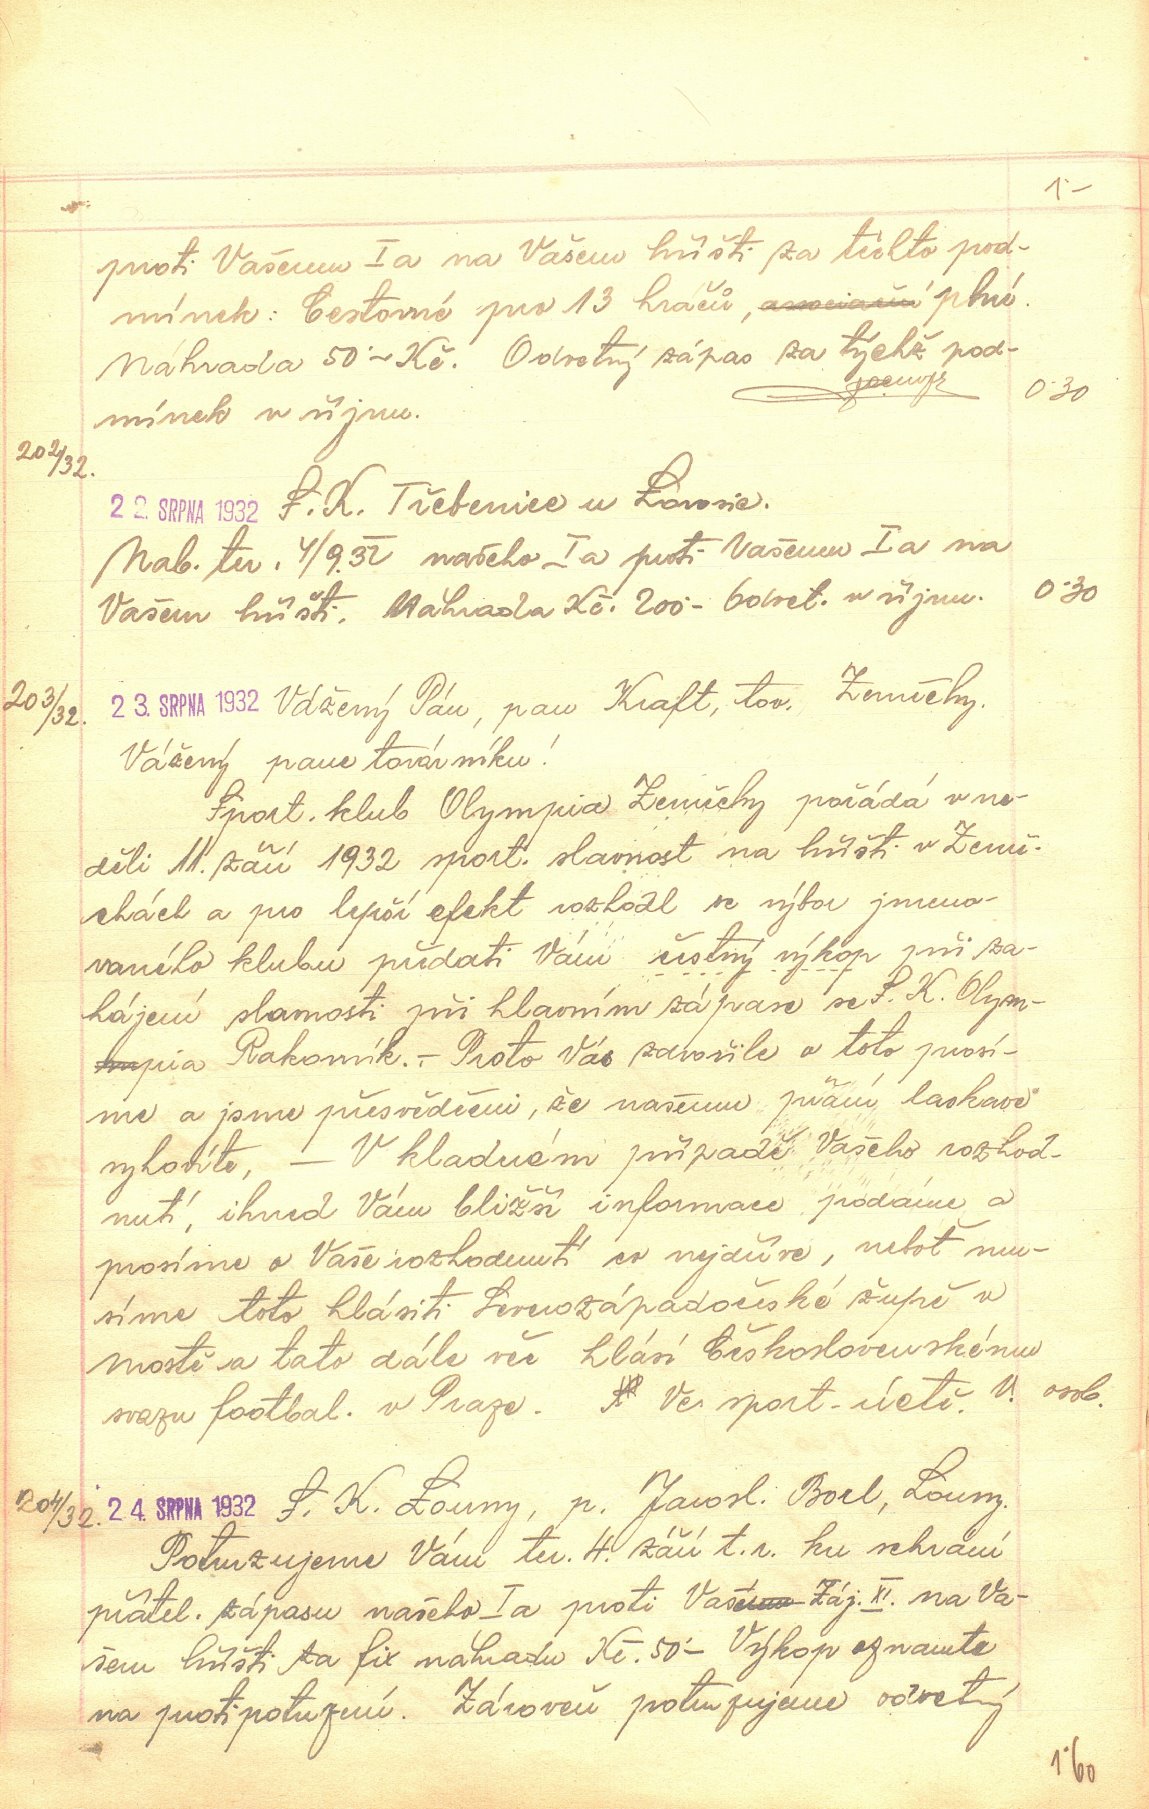 1·–
proti Vašemu Ia na Vašem hřišti za těchto pod-
mínek: Cestovné pro 13 hráčů, asociační plné.
Náhrada 50·– Kč. Odvetný zápas za týchž pod-
mínek v říjnu. 0·30
202/32.
22. SRPNA 1932 S. K. Třebenice u Lovosic.
Nab. ter. 4/9.32 našeho Ia proti Vašemu Ia na
Vašem hřišti. Náhrada Kč. 200·– Odvet. v říjnu. 0·30
203/32. 23. SRPNA 1932 Vážený Pán, pan Kraft, tov. Zeměchy.
Vážený pane továrníku!
Sport. klub Olympia Zeměchy pořádá v ne-
děli 11. září 1932 sport. slavnost na hřišti v Země-
chách a pro lepší efekt rozhodl se výbor jmeno-
vaného klubu předati Vám čestný výkop při za-
hájení slavnosti při hlavním zápase se S. K. Olym-
pia Rakovník. – Proto Vás zdvořile o toto prosí-
me a jsme přesvědčeni, že našemu přání laskavě
vyhovíte, – V kladném případě Vašeho rozhod-
nutí, ihned Vám bližší informace podáme a
prosíme o Vaše rozhodnutí co nejdříve, neboť mu-
síme toto hlásiti Severozápadočeské župě v
Mostě a tato dále věc hlásí Československému
svazu footbal. v Praze. Ve sport. úctě. V. osob.
204/32. 24. SRPNA 1932 S. K. Louny, p. Jarosl. Borl, Louny.
Potvrzujeme Vám ter. 4. září t.r. ku sehrání
přátel. zápasu našeho Ia proti Vašemu Záj. XI. na Va-
šem hřišti za fix náhradu Kč. 50·– Výkop oznamte
na protipotvrzení. Zároveň potvrzujeme odvetný
1·60